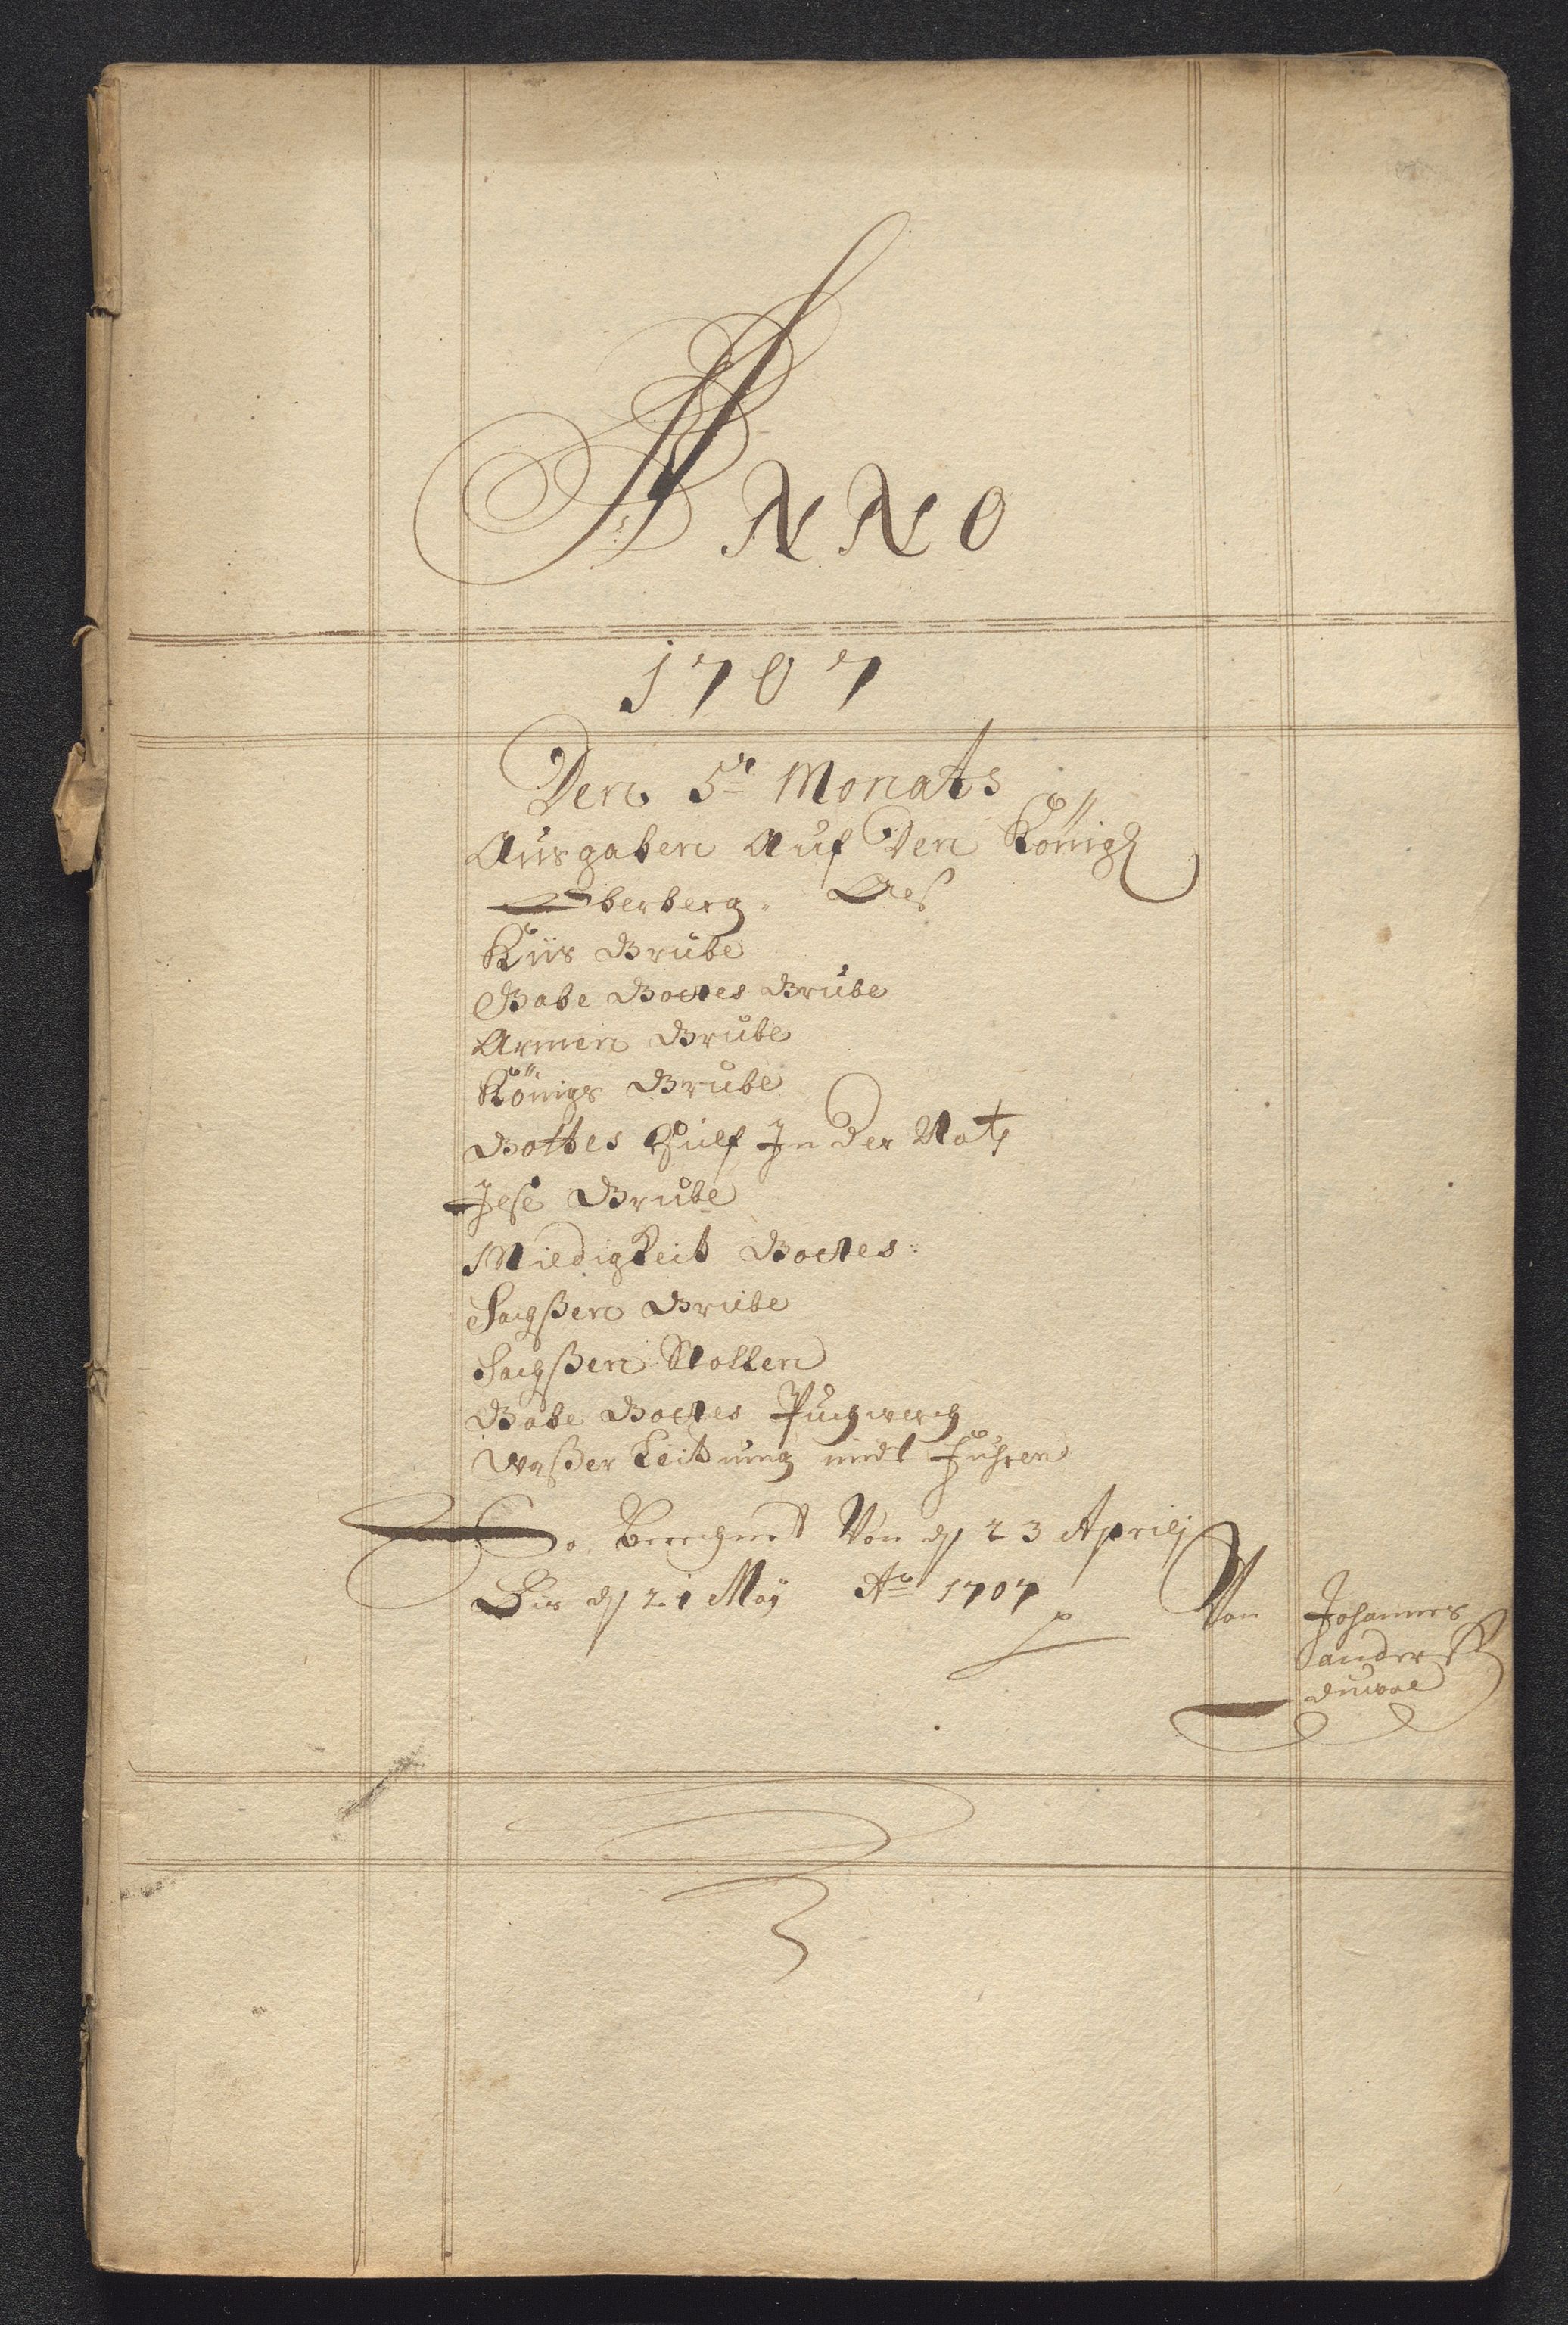 Anno
1707
Den 5t Monats
Ausgaben Auf Den Königl
Oberberg. Als
Kiis Grube
Gabe Gottes Grube
Armen Grube
Königs Grube
Gottes Hülf In der Noht
Jese Grube
Mildigkeit Gottes
Sachßen Grube
Sachßen Stollen
Gabe Gottes Puchwerch
Waßer Leitung undt Fuhren
So Berechnet Von dn 23 Aprilj
Bis dn 21 Maÿ Ao 1707
Von Johannes
ander